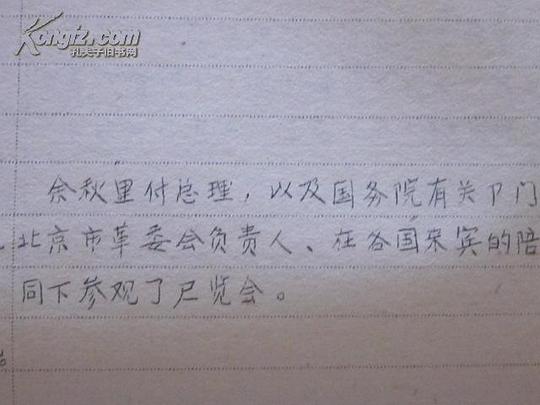 Kongfz.com
孔夫子旧书网
余秋里付总理，以及国务院有关卩门
、北京市革委会负责人、在各国来宾的陪
同下参观了尸览会。